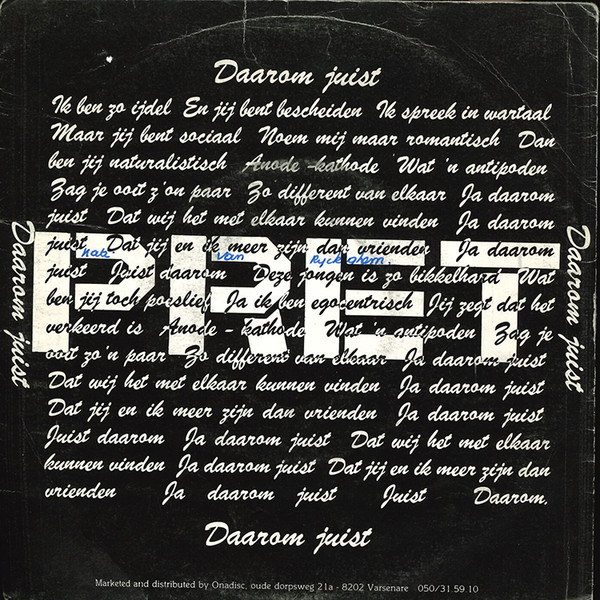 Daarom juist
Ik ben zo ijdel En jij bent bescheiden Ik spreek in wartaal
Maar jij bent sociaal Noem mij maar romantisch Dan
ben jij naturalistisch Anode-kathode Wat 'n antipoden
Zag je ooit z'on paar Zo different van elkaar Ja daarom
juist Dat wij het met elkaar kunnen vinden Ja daarom
juist Dat jij en ik meer zijn dan vrienden Ja daarom
juist Juist daarom Deze jongen is zo bikkelhard Wat
ben jij toch poeslief Ja ik ben egocentrisch Jij zegt dat het
verkeerd is Anode - kathode Wat 'n antipoden Zag je
ooit zo'n paar Zo different van elkaar Ja daarom juist
Dat wij het met elkaar kunnen vinden Ja daarom juist
Dat jij en ik meer zijn dan vrienden Ja daarom juist
Juist daarom Ja daarom juist Dat wij het met elkaar
kunnen vinden Ja daarom juist Dat jij en ik meer zijn dan
vrienden Ja daarom juist Juist Daarom.
PRET
van
Daarom juist
Daarom juist
Daarom juist
Marketed and distributed by Onadisc, oude dorpsweg 21a - 8202 Varsenare 050/31.59.10